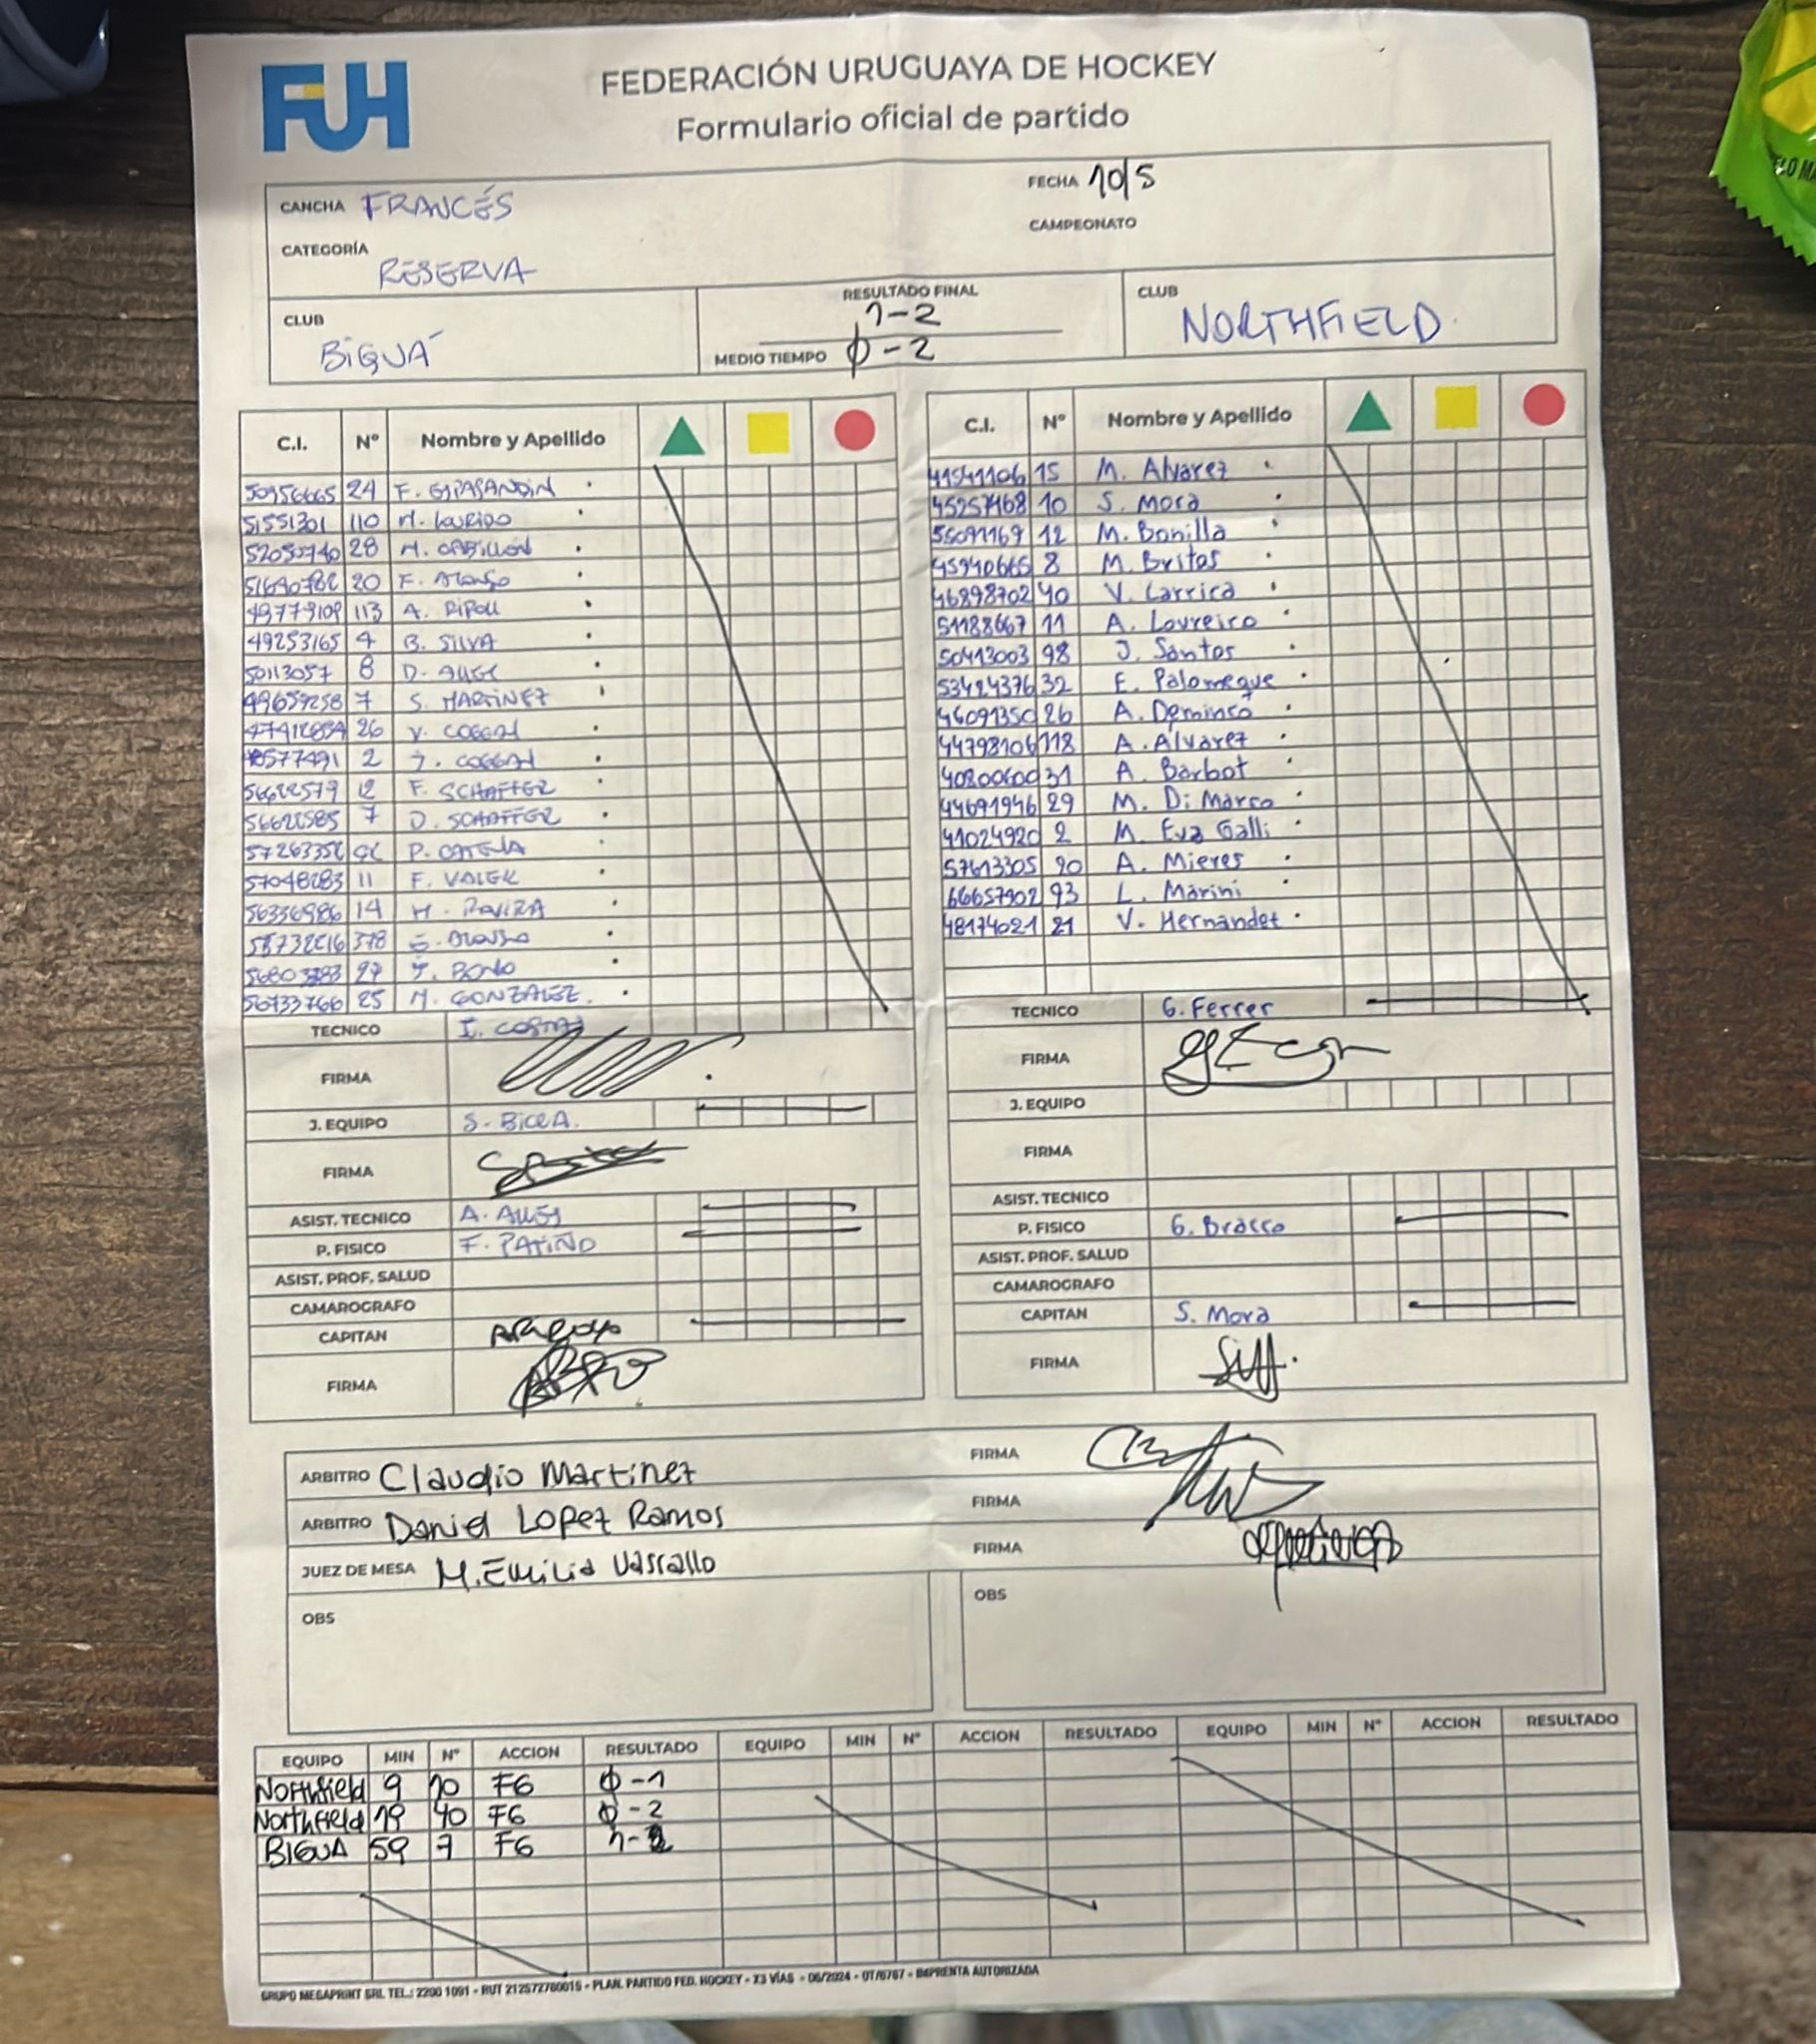 FUH
FEDERACIÓN URUGUAYA DE HOCKEY
Formulario oficial de partido
CANCHA FRANCÉS
FECHA 10/5
CATEGORÍA RESERVA
CAMPEONATO
CLUB BIGUÁ
RESULTADO FINAL 1-2
MEDIO TIEMPO 0-2
CLUB NORTHFIELD
C.I. Nº Nombre y Apellido
24 F.
51551301 110 M. LOURIDO
28 M.
20 F. Alonso
49779109 113 A. RIPOLL
49253165 4 B. SILVA
50113057 8 D.
49659258 7 S. MARTINEZ
26 V. COGGAN
2 J. COGGAN
12 F. SCHAFFER
7 D. SCHAFFER
P.
11 F. VALEK
56336986 14 M.
378 S. Alonso
J. BONO
56733766 25 M. GONZALEZ
TECNICO I.
FIRMA
J. EQUIPO S.
FIRMA
ASIST. TECNICO A.
P. FISICO F. PATIÑO
ASIST. PROF. SALUD
CAMAROGRAFO
CAPITAN
FIRMA
C.I. Nº Nombre y Apellido
41541106 15 M. Alvarez
45257468 10 S. Mora
55091169 12 M. Bonilla
45940665 8 M. Britos
46898702 40 V. Larrica
51188667 11 A. Loureiro
50413003 98 J. Santos
53424376 32 E. Palomeque
46091350 26 A. Deminco
44798106 118 A. Alvarez
31 A. Barbot
44691946 29 M. Di Marco
41024920 2 M. Eva Galli
57613305 20 A. Mieres
66657902 93 L. Marini
48174021 21 V. Hernandez
TECNICO G. Ferrer
FIRMA
J. EQUIPO
FIRMA
ASIST. TECNICO
P. FISICO G. Bracco
ASIST. PROF. SALUD
CAMAROGRAFO
CAPITAN S. Mora
FIRMA
ARBITRO Claudio Martinez FIRMA
ARBITRO Daniel Lopez Ramos FIRMA
JUEZ DE MESA M. Emilia Vassallo FIRMA
OBS
OBS
EQUIPO MIN Nº ACCION RESULTADO EQUIPO MIN Nº ACCION RESULTADO EQUIPO MIN Nº ACCION RESULTADO
Northfield 9 10 FG 0-1
Northfield 19 40 FG 0-2
BIGUA 59 7 FG 1-2
GRUPO MEGAPRINT SRL TEL.: 2200 1091 - RUT 212572760015 - PLAN. PARTIDO FED. HOCKEY - X3 VÍAS - 06/2024 - OT/6767 - IMPRENTA AUTORIZADA